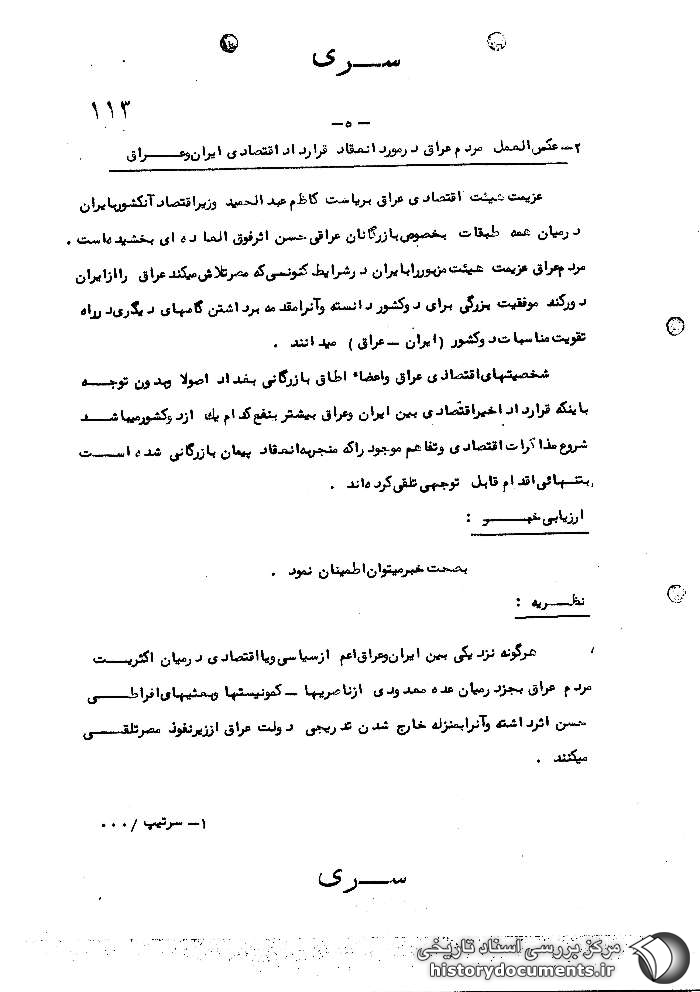 سری
۱۱۳
- ۵ -
۲- عکس العمل مردم عراق درمورد انعقاد قرارداد اقتصادی ایران وعراق
عزیمت هیئت اقتصادی عراق بریاست کاظم عبدالحمید وزیراقتصاد آنکشوربایران
درمیان همه طبقات بخصوص بازرگانان عراقی حسن اثرفوق العاده ای بخشیده است .
مردم عراق عزیمت هیئت مزبوررابایران درشرایط کنونی که مصرتلاش میکند عراق راازایران
دورکند موفقیت بزرگی برای دوکشور دانسته وآنرامقدمه برداشتن گامهای دیگری درراه
تقویت مناسبات دوکشور (ایران - عراق) میدانند .
شخصیتهای اقتصادی عراق واعضاء اطاق بازرگانی بغداد اصولا وبدون توجه
باینکه قرارداد اخیراقتصادی بین ایران وعراق بیشتر بنفع کدام یك ازدوکشورمیباشد
شروع مذاکرات اقتصادی وتفاهم موجود راکه منجربه انعقاد پیمان بازرگانی شده است
بتنهائی اقدام قابل توجهی تلقی کرده اند .
ارزیابی خبر :
بصحت خبرمیتوان اطمینان نمود .
نظریه :
هرگونه نزدیکی بین ایران وعراق اعم ازسیاسی ویااقتصادی درمیان اکثریت
مردم عراق بجزدرمیان عده معدودی ازناصریها - کمونیستها وبعثیهای افراطی
حسن اثرداشته وآنرابمنزله خارج شدن تدریجی دولت عراق اززیرنفوذ مصرتلقی
میکنند .
۱- سرتیپ /۰۰۰
سری
مرکز بررسی اسناد تاریخی
historydocuments.ir